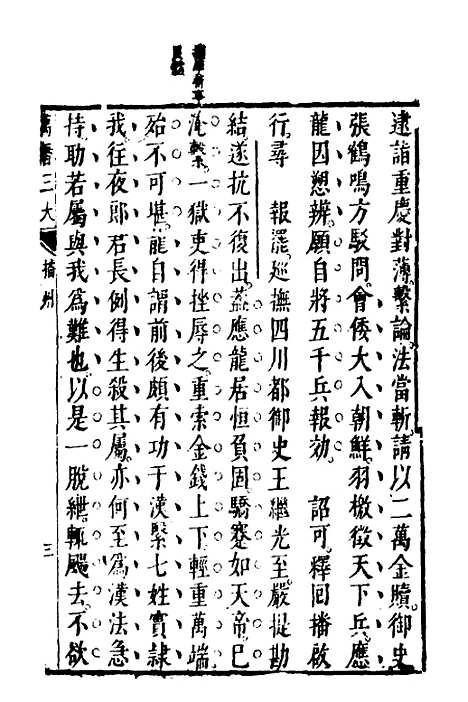 逮詣重慶對薄繫論法當斬請以二萬金贖御史
張鶴鳴方駁問會倭大入朝鮮羽檄徵天下兵應
龍因愬辨願自將五千兵報効　詔可釋回播啟
行尋　報罷巡撫四川都御史王繼光至嚴提勘
結遂抗不復出蓋應龍居恒負固驕蹇如天帝巳
淹繫一獄吏得挫辱之重索金錢上下輕重萬端
殆不可堪龍自謂前後頗有功于漢繫七姓實隸
我往夜郎君長例得生殺其屬亦何至爲漢法急
持助若屬與我爲難也以是一脫紲輒颺去不欲
萬曆三大　播州　三